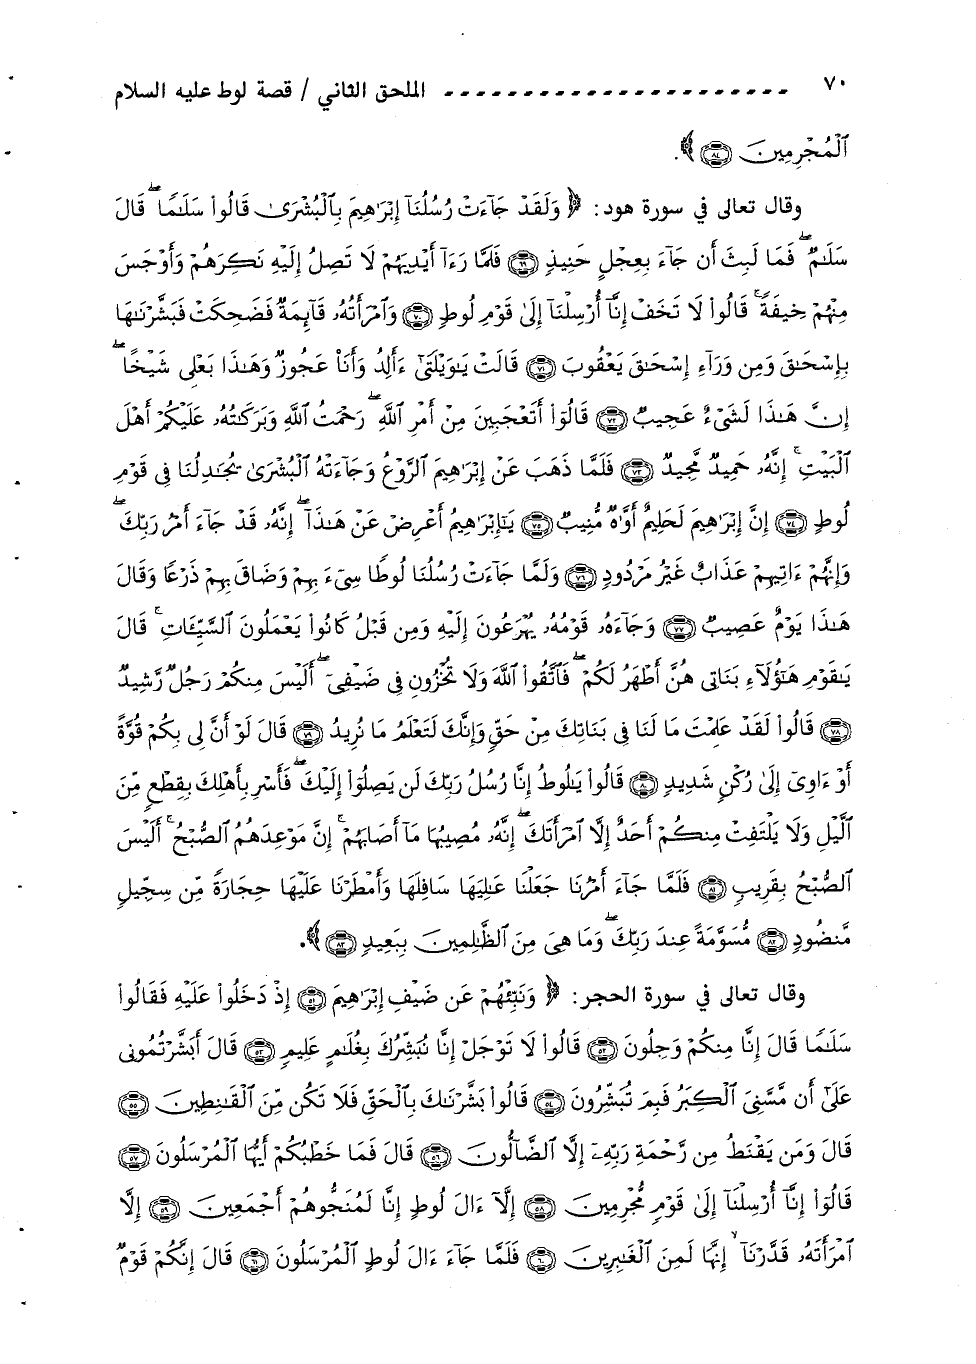 ٧٠ ---------------------- الملحق الثاني / قصة لوط عليه السلام
ٱلْمُجْرِمِينَ ﴿٨٤﴾ ﴾.
وقال تعالى في سورة هود: ﴿ وَلَقَدْ جَآءَتْ رُسُلُنَآ إِبْرَٰهِيمَ بِٱلْبُشْرَىٰ قَالُوا۟ سَلَٰمًا ۖ قَالَ
سَلَٰمٌ ۖ فَمَا لَبِثَ أَن جَآءَ بِعِجْلٍ حَنِيذٍ ﴿٦٩﴾ فَلَمَّا رَءَآ أَيْدِيَهُمْ لَا تَصِلُ إِلَيْهِ نَكِرَهُمْ وَأَوْجَسَ
مِنْهُمْ خِيفَةً ۚ قَالُوا۟ لَا تَخَفْ إِنَّآ أُرْسِلْنَآ إِلَىٰ قَوْمِ لُوطٍ ﴿٧٠﴾ وَٱمْرَأَتُهُۥ قَآئِمَةٌ فَضَحِكَتْ فَبَشَّرْنَٰهَا
بِإِسْحَٰقَ وَمِن وَرَآءِ إِسْحَٰقَ يَعْقُوبَ ﴿٧١﴾ قَالَتْ يَٰوَيْلَتَىٰٓ ءَأَلِدُ وَأَنَا۠ عَجُوزٌ وَهَٰذَا بَعْلِى شَيْخًا ۖ
إِنَّ هَٰذَا لَشَىْءٌ عَجِيبٌ ﴿٧٢﴾ قَالُوٓا۟ أَتَعْجَبِينَ مِنْ أَمْرِ ٱللَّهِ ۖ رَحْمَتُ ٱللَّهِ وَبَرَكَٰتُهُۥ عَلَيْكُمْ أَهْلَ
ٱلْبَيْتِ ۚ إِنَّهُۥ حَمِيدٌ مَّجِيدٌ ﴿٧٣﴾ فَلَمَّا ذَهَبَ عَنْ إِبْرَٰهِيمَ ٱلرَّوْعُ وَجَآءَتْهُ ٱلْبُشْرَىٰ يُجَٰدِلُنَا فِى قَوْمِ
لُوطٍ ﴿٧٤﴾ إِنَّ إِبْرَٰهِيمَ لَحَلِيمٌ أَوَّٰهٌ مُّنِيبٌ ﴿٧٥﴾ يَٰٓإِبْرَٰهِيمُ أَعْرِضْ عَنْ هَٰذَآ ۖ إِنَّهُۥ قَدْ جَآءَ أَمْرُ رَبِّكَ ۖ
وَإِنَّهُمْ ءَاتِيهِمْ عَذَابٌ غَيْرُ مَرْدُودٍ ﴿٧٦﴾ وَلَمَّا جَآءَتْ رُسُلُنَا لُوطًا سِىٓءَ بِهِمْ وَضَاقَ بِهِمْ ذَرْعًا وَقَالَ
هَٰذَا يَوْمٌ عَصِيبٌ ﴿٧٧﴾ وَجَآءَهُۥ قَوْمُهُۥ يُهْرَعُونَ إِلَيْهِ وَمِن قَبْلُ كَانُوا۟ يَعْمَلُونَ ٱلسَّيِّـَٔاتِ ۚ قَالَ
يَٰقَوْمِ هَٰٓؤُلَآءِ بَنَاتِى هُنَّ أَطْهَرُ لَكُمْ ۖ فَٱتَّقُوا۟ ٱللَّهَ وَلَا تُخْزُونِ فِى ضَيْفِىٓ ۖ أَلَيْسَ مِنكُمْ رَجُلٌ رَّشِيدٌ
﴿٧٨﴾ قَالُوا۟ لَقَدْ عَلِمْتَ مَا لَنَا فِى بَنَاتِكَ مِنْ حَقٍّ وَإِنَّكَ لَتَعْلَمُ مَا نُرِيدُ ﴿٧٩﴾ قَالَ لَوْ أَنَّ لِى بِكُمْ قُوَّةً
أَوْ ءَاوِىٓ إِلَىٰ رُكْنٍ شَدِيدٍ ﴿٨٠﴾ قَالُوا۟ يَٰلُوطُ إِنَّا رُسُلُ رَبِّكَ لَن يَصِلُوٓا۟ إِلَيْكَ ۖ فَأَسْرِ بِأَهْلِكَ بِقِطْعٍ مِّنَ
ٱلَّيْلِ وَلَا يَلْتَفِتْ مِنكُمْ أَحَدٌ إِلَّا ٱمْرَأَتَكَ ۖ إِنَّهُۥ مُصِيبُهَا مَآ أَصَابَهُمْ ۚ إِنَّ مَوْعِدَهُمُ ٱلصُّبْحُ ۚ أَلَيْسَ
ٱلصُّبْحُ بِقَرِيبٍ ﴿٨١﴾ فَلَمَّا جَآءَ أَمْرُنَا جَعَلْنَا عَٰلِيَهَا سَافِلَهَا وَأَمْطَرْنَا عَلَيْهَا حِجَارَةً مِّن سِجِّيلٍ
مَّنضُودٍ ﴿٨٢﴾ مُّسَوَّمَةً عِندَ رَبِّكَ ۖ وَمَا هِىَ مِنَ ٱلظَّٰلِمِينَ بِبَعِيدٍ ﴿٨٣﴾ ﴾.
وقال تعالى في سورة الحجر: ﴿ وَنَبِّئْهُمْ عَن ضَيْفِ إِبْرَٰهِيمَ ﴿٥١﴾ إِذْ دَخَلُوا۟ عَلَيْهِ فَقَالُوا۟
سَلَٰمًا قَالَ إِنَّا مِنكُمْ وَجِلُونَ ﴿٥٢﴾ قَالُوا۟ لَا تَوْجَلْ إِنَّا نُبَشِّرُكَ بِغُلَٰمٍ عَلِيمٍ ﴿٥٣﴾ قَالَ أَبَشَّرْتُمُونِى
عَلَىٰٓ أَن مَّسَّنِىَ ٱلْكِبَرُ فَبِمَ تُبَشِّرُونَ ﴿٥٤﴾ قَالُوا۟ بَشَّرْنَٰكَ بِٱلْحَقِّ فَلَا تَكُن مِّنَ ٱلْقَٰنِطِينَ ﴿٥٥﴾
قَالَ وَمَن يَقْنَطُ مِن رَّحْمَةِ رَبِّهِۦٓ إِلَّا ٱلضَّآلُّونَ ﴿٥٦﴾ قَالَ فَمَا خَطْبُكُمْ أَيُّهَا ٱلْمُرْسَلُونَ ﴿٥٧﴾
قَالُوٓا۟ إِنَّآ أُرْسِلْنَآ إِلَىٰ قَوْمٍ مُّجْرِمِينَ ﴿٥٨﴾ إِلَّآ ءَالَ لُوطٍ إِنَّا لَمُنَجُّوهُمْ أَجْمَعِينَ ﴿٥٩﴾ إِلَّا
ٱمْرَأَتَهُۥ قَدَّرْنَآ ۙ إِنَّهَا لَمِنَ ٱلْغَٰبِرِينَ ﴿٦٠﴾ فَلَمَّا جَآءَ ءَالَ لُوطٍ ٱلْمُرْسَلُونَ ﴿٦١﴾ قَالَ إِنَّكُمْ قَوْمٌ